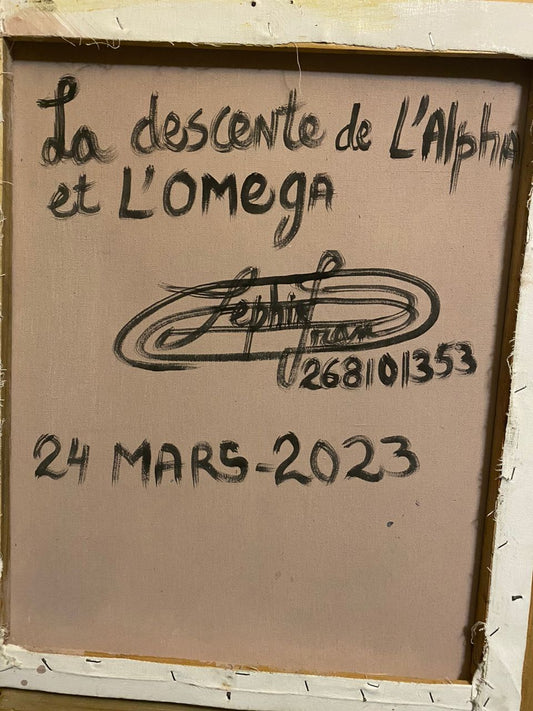 La descente de L'Alpha
et L'OMEgA
268101353
24 MARS-2023